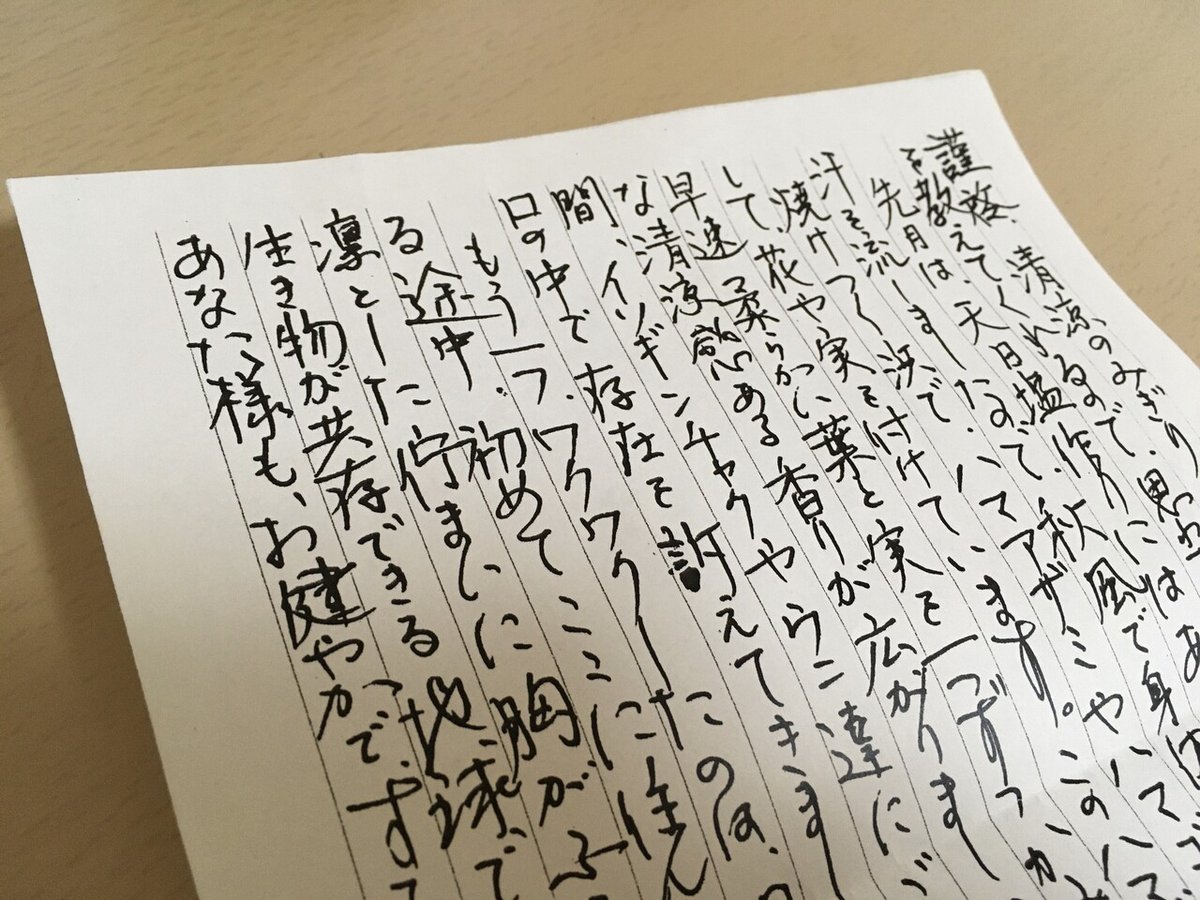 謹啓、清涼のみぎり
を教えてくれるので、思
先月は、天日塩作りにはあ
汗を流しました。秋風で身
焼けつく浜で、ハマアザミやハマ
して、花や実を付けています。この
早速、柔らかい葉と実を一つずつ
な清涼感ある香りが広がりまし
間、イソギンチャクやウニ達に
口の中で存在を訴えてきまし
もう一つ、ワクワクしたのは、
る途中、初めてここに住ん
凛とした佇まいに胸がふ
生き物が共存できる地球で
あなた様も、お健やかで、すて